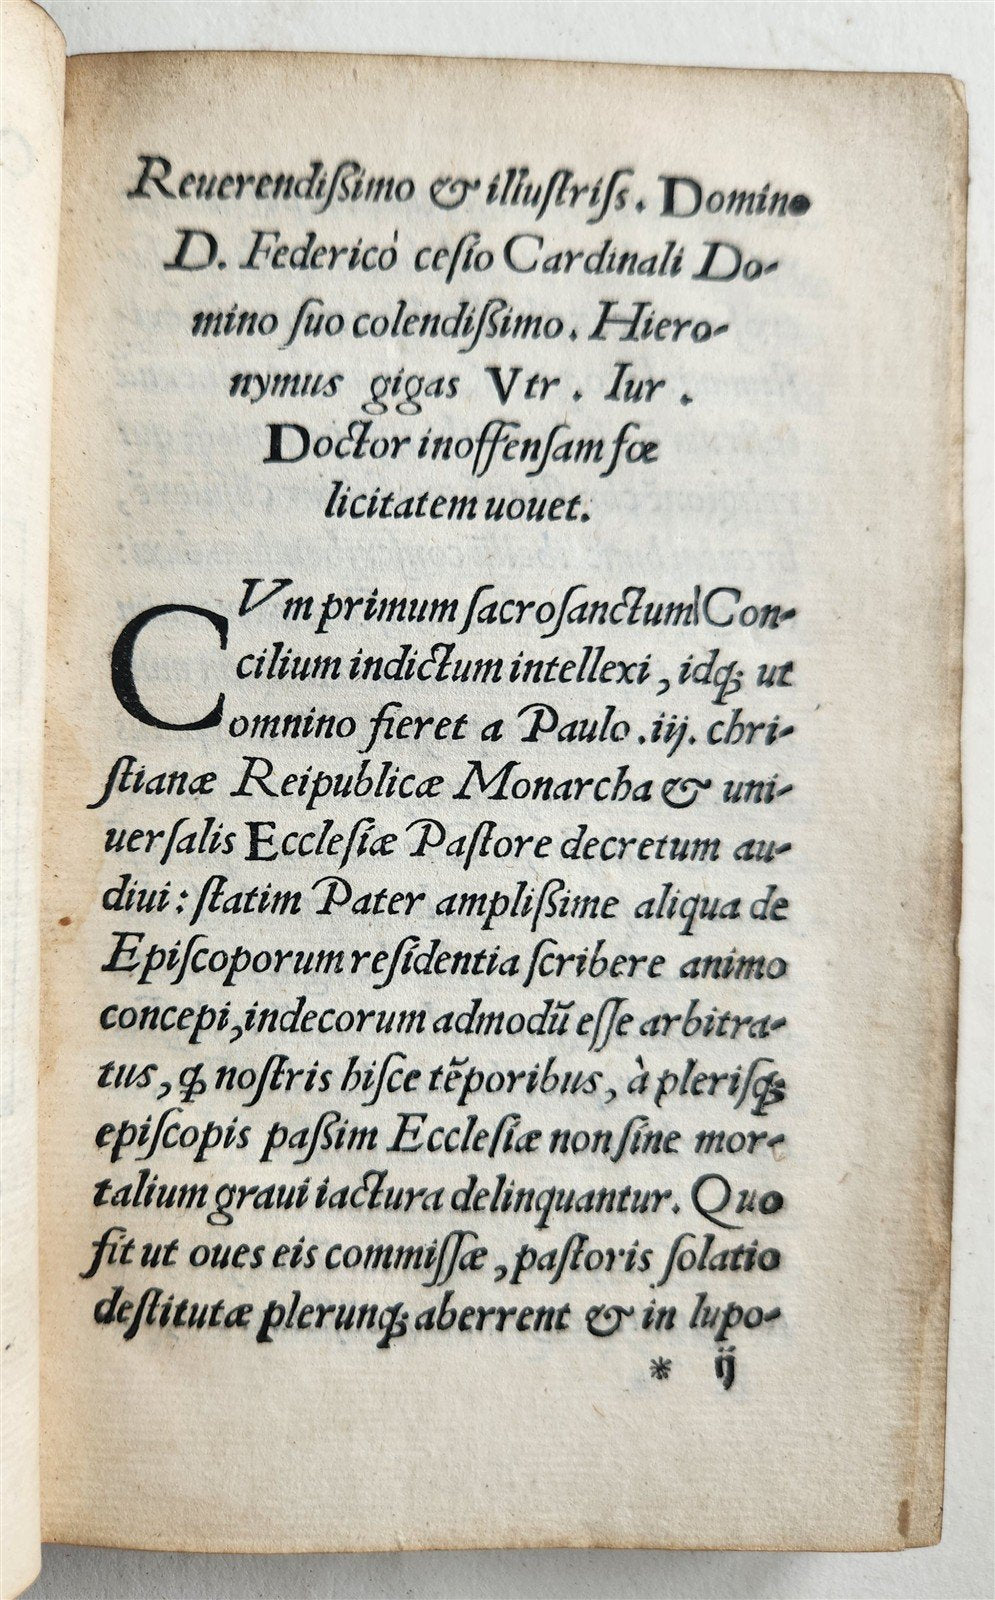 Reuerendiſſimo & illuſtriſs. Domino
D. Federicò ceſio Cardinali Do-
mino ſuo colendiſſimo. Hiero-
nymus gigas Vtr. Iur.
Doctor inoffenſam fœ
licitatem uouet.
CVm primum ſacroſanctum Con-
cilium indictum intellexi, idq; ut
omnino fieret a Paulo .iij. chri-
ſtianæ Reipublicæ Monarcha & uni-
uerſalis Eccleſiæ Paſtore decretum au-
diui: ſtatim Pater ampliſſime aliqua de
Epiſcoporum reſidentia ſcribere animo
concepi, indecorum admodũ eſſe arbitra-
tus, ꝙ noſtris hiſce tẽporibus, à pleriſq;
epiſcopis paſſim Eccleſiæ non ſine mor-
talium graui iactura delinquantur. Quo
fit ut oues eis commiſſæ, paſtoris ſolatio
deſtitutæ plerunq; aberrent & in lupo-
* ij